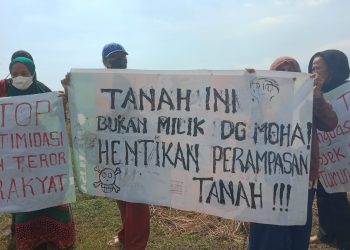 STOP
INTIMIDASI
TEROR
RAKYAT
TANAH INI
BUKAN MILIK DG MOHA
HENTIKAN PERAMPASAN
TANAH !!!